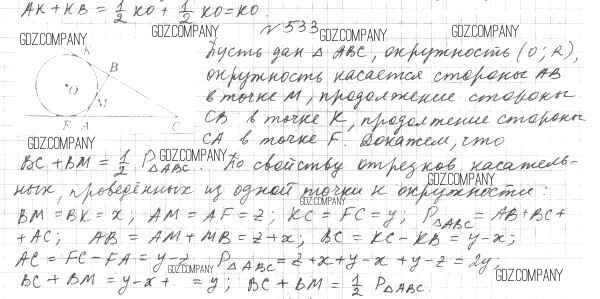 AK + KB = 1/2 KO + 1/2 KO = KO.
GDZ.COMPANY GDZ.COMPANY GDZ.COMPANY GDZ.COMPANY
№ 533
Пусть дан △ ABC, окружность (O; R),
окружность касается стороны AB
в точке M, продолжение стороны
CB в точке K, продолжение стороны
CA в точке F. Докажем, что
K B O M F A C
GDZ.COMPANY
BC + BM = 1/2 P△ABC. По свойству отрезков касатель-
GDZ.COMPANY GDZ.COMPANY
ных, проведённых из одной точки к окружности:
GDZ.COMPANY
BM = BK = x; AM = AF = z; KC = FC = y; P△ABC = AB + BC +
+ AC; AB = AM + MB = z + x; BC = KC - KB = y - x;
AC = FC - FA = y - z P△ABC = z + x + y - x + y - z = 2y;
GDZ.COMPANY GDZ.COMPANY
BC + BM = y - x + = y; BC + BM = 1/2 P△ABC.